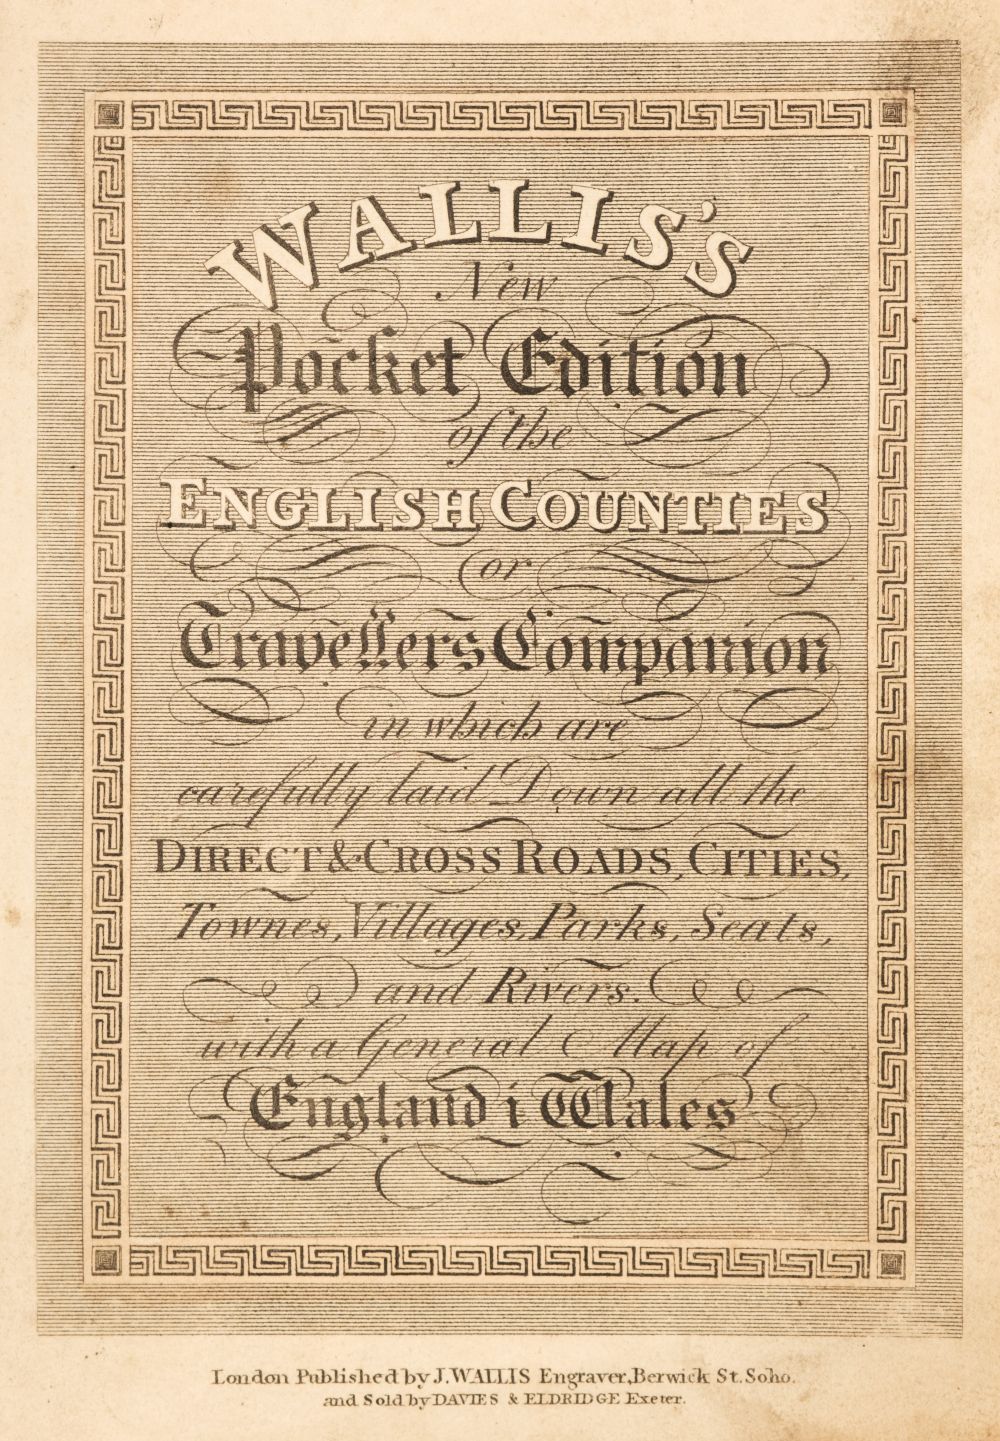 WALLIS'S
New
Pocket Edition
of the
ENGLISH COUNTIES
or
Travellers Companion
in which are
carefully laid Down all the
DIRECT & CROSS ROADS, CITIES,
Townes, Villages, Parks, Seats,
and Rivers.
with a General Map of
England i Wales
London Published by J. WALLIS Engraver, Berwick St. Soho.
and Sold by DAVIES & ELDRIDGE Exeter.